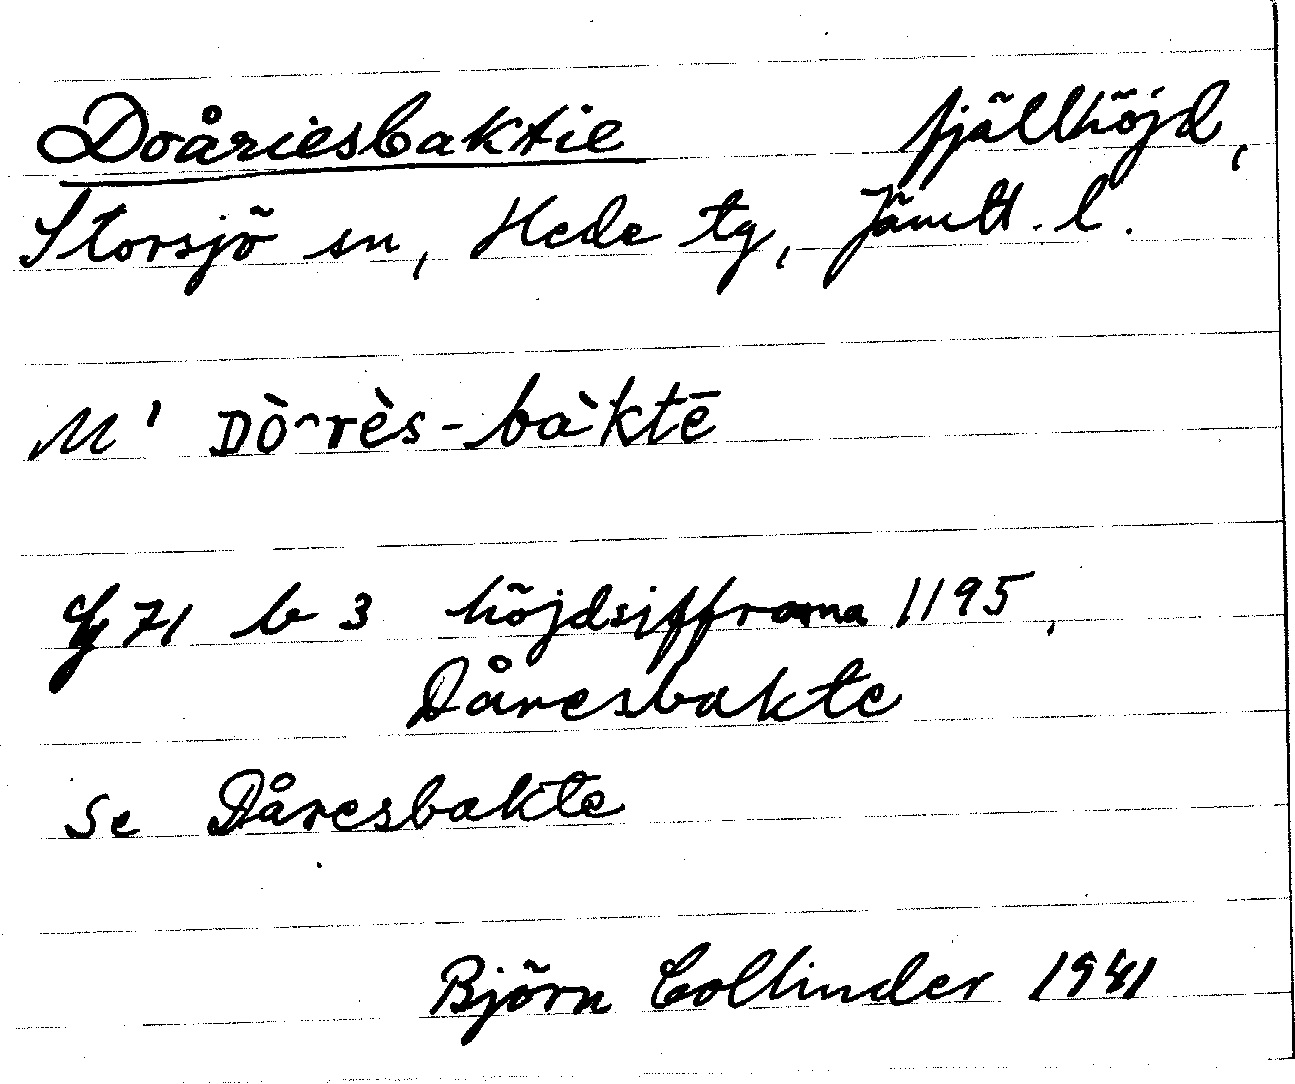 Doåriesbaktie fjällhöjd,
Storsjö sn, Hede tg, Jämtl. l.
M' Dò͡rès-bàktē
Gg 71 b 3 höjdsiffrorna 1195,
Dåresbakte
Se Dåresbakte
Björn Collinder 1941